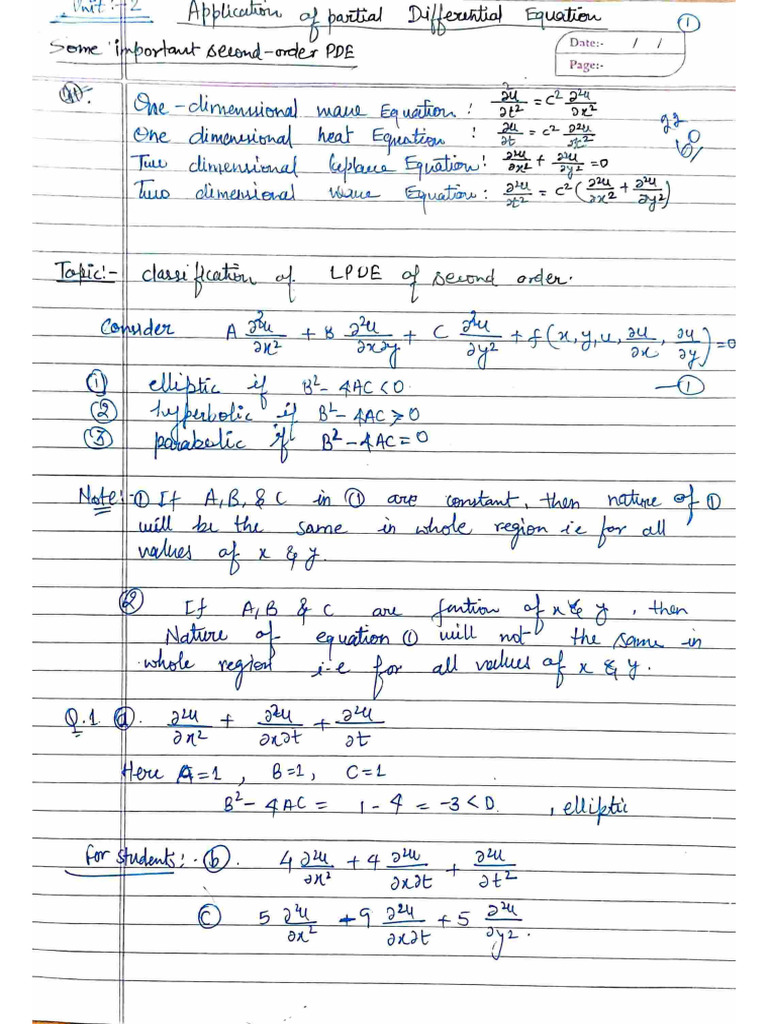 Unit:-2 Application of partial Differential Equation ①
Some important second-order PDE
Date:- / /
Page:-
One-dimensional wave Equation: ∂²u/∂t² = c² ∂²u/∂x²
One dimensional heat Equation: ∂u/∂t = c² ∂²u/∂x²
Two dimensional Laplace Equation: ∂²u/∂x² + ∂²u/∂y² = 0
Two dimensional wave Equation: ∂²u/∂t² = c² (∂²u/∂x² + ∂²u/∂y²)
Topic:- classification of LPDE of second order.
Consider A ∂²u/∂x² + B ∂²u/∂x∂y + C ∂²u/∂y² + f(x, y, u, ∂u/∂x, ∂u/∂y) = 0
① elliptic if B² - 4AC < 0. —①
② hyperbolic if B² - 4AC > 0
③ parabolic if B² - 4AC = 0
Note:- ① If A, B, & C in ① are constant, then nature of ①
will be the same in whole region ie for all
values of x & y.
② If A, B & C are funtion of x & y, then
Nature of equation ① will not the same in
whole region i-e for all values of x & y.
Q.1 ⓐ. ∂²u/∂x² + ∂²u/∂x∂t + ∂²u/∂t
Here A=1, B=1, C=1
B² - 4AC = 1 - 4 = -3 < 0. , elliptic
For students:. ⓑ. 4 ∂²u/∂x² + 4 ∂²u/∂x∂t + ∂²u/∂t²
ⓒ 5 ∂²u/∂x² - 9 ∂²u/∂x∂t + 5 ∂²u/∂y².